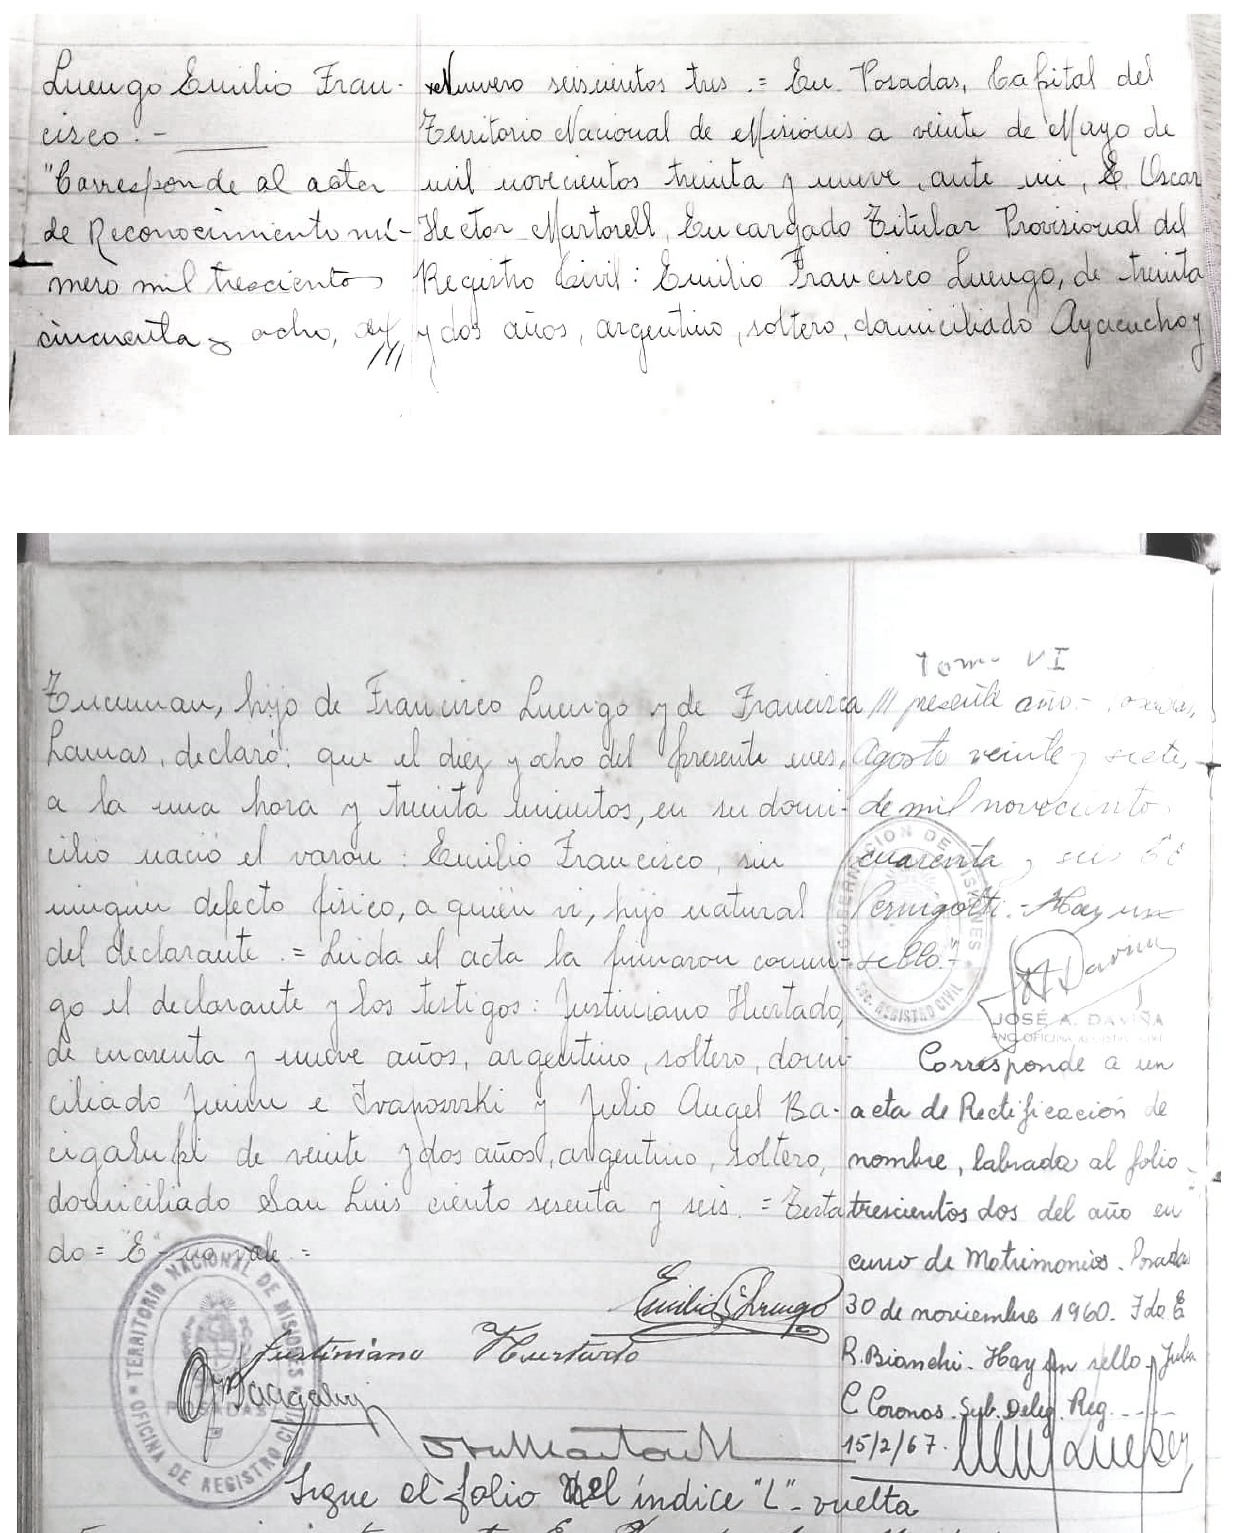 Luengo Emilio Fran-
cisco.-
"Corresponde al acta
de Reconocimiento nú-
mero mil trescientos
cincuenta y ocho, del
///
Numero seiscientos tres.= En Posadas, Capital del
Territorio Nacional de Misiones a veinte de Mayo de
mil novecientos treinta y nueve, ante mi, E. Oscar
Hector Martorell, Encargado Titular Provisional del
Registro Civil: Emilio Francisco Luengo, de treinta
y dos años, argentino, soltero, domiciliado Ayacucho y
Tucuman, hijo de Francisco Luengo y de Francisca
Lamas, declaró: que el diez y ocho del presente mes,
a la una hora y treinta minutos, en su domi-
cilio nació el varon: Emilio Francisco, sin
ningún defecto fisico, a quién vi, hijo natural
del declarante.= Leida el acta la firmaron conmi-
go el declarante y los testigos: Justiniano Hurtado,
de cuarenta y nueve años, argentino, soltero, domi-
ciliado Junin e Ivapowski y Julio Angel Ba-
cigalupi de veinte y dos años, argentino, soltero,
domiciliado San Luis ciento sesenta y seis.= Testa
do= "E"- no vale=
Justiniano Hurtado
Sigue el folio del índice "L"- vuelta
TERRITORIO NACIONAL DE MISIONES
POSADAS
OFICINA DE REGISTRO CIVIL
Tomo VI
/// presente año.- Posadas,
Agosto veinte y siete,
de mil novecientos
cuarenta y seis
Pernigotti.- Hay un
sello.-
GOBERNACION DE MISIONES
REGISTRO CIVIL
JOSÉ A. DAVIÑA
ENC. OFICINA REGISTRO CIVIL
Corresponde a un
acta de Rectificación de
nombre, labrada al folio
trescientos dos del año en
curso de Matrimonios. Posadas
30 de noviembre 1960. Fdo. E
R. Bianchi. Hay un sello. Julia
C Coronos. Sub. Deleg. Reg.
15/2/67.